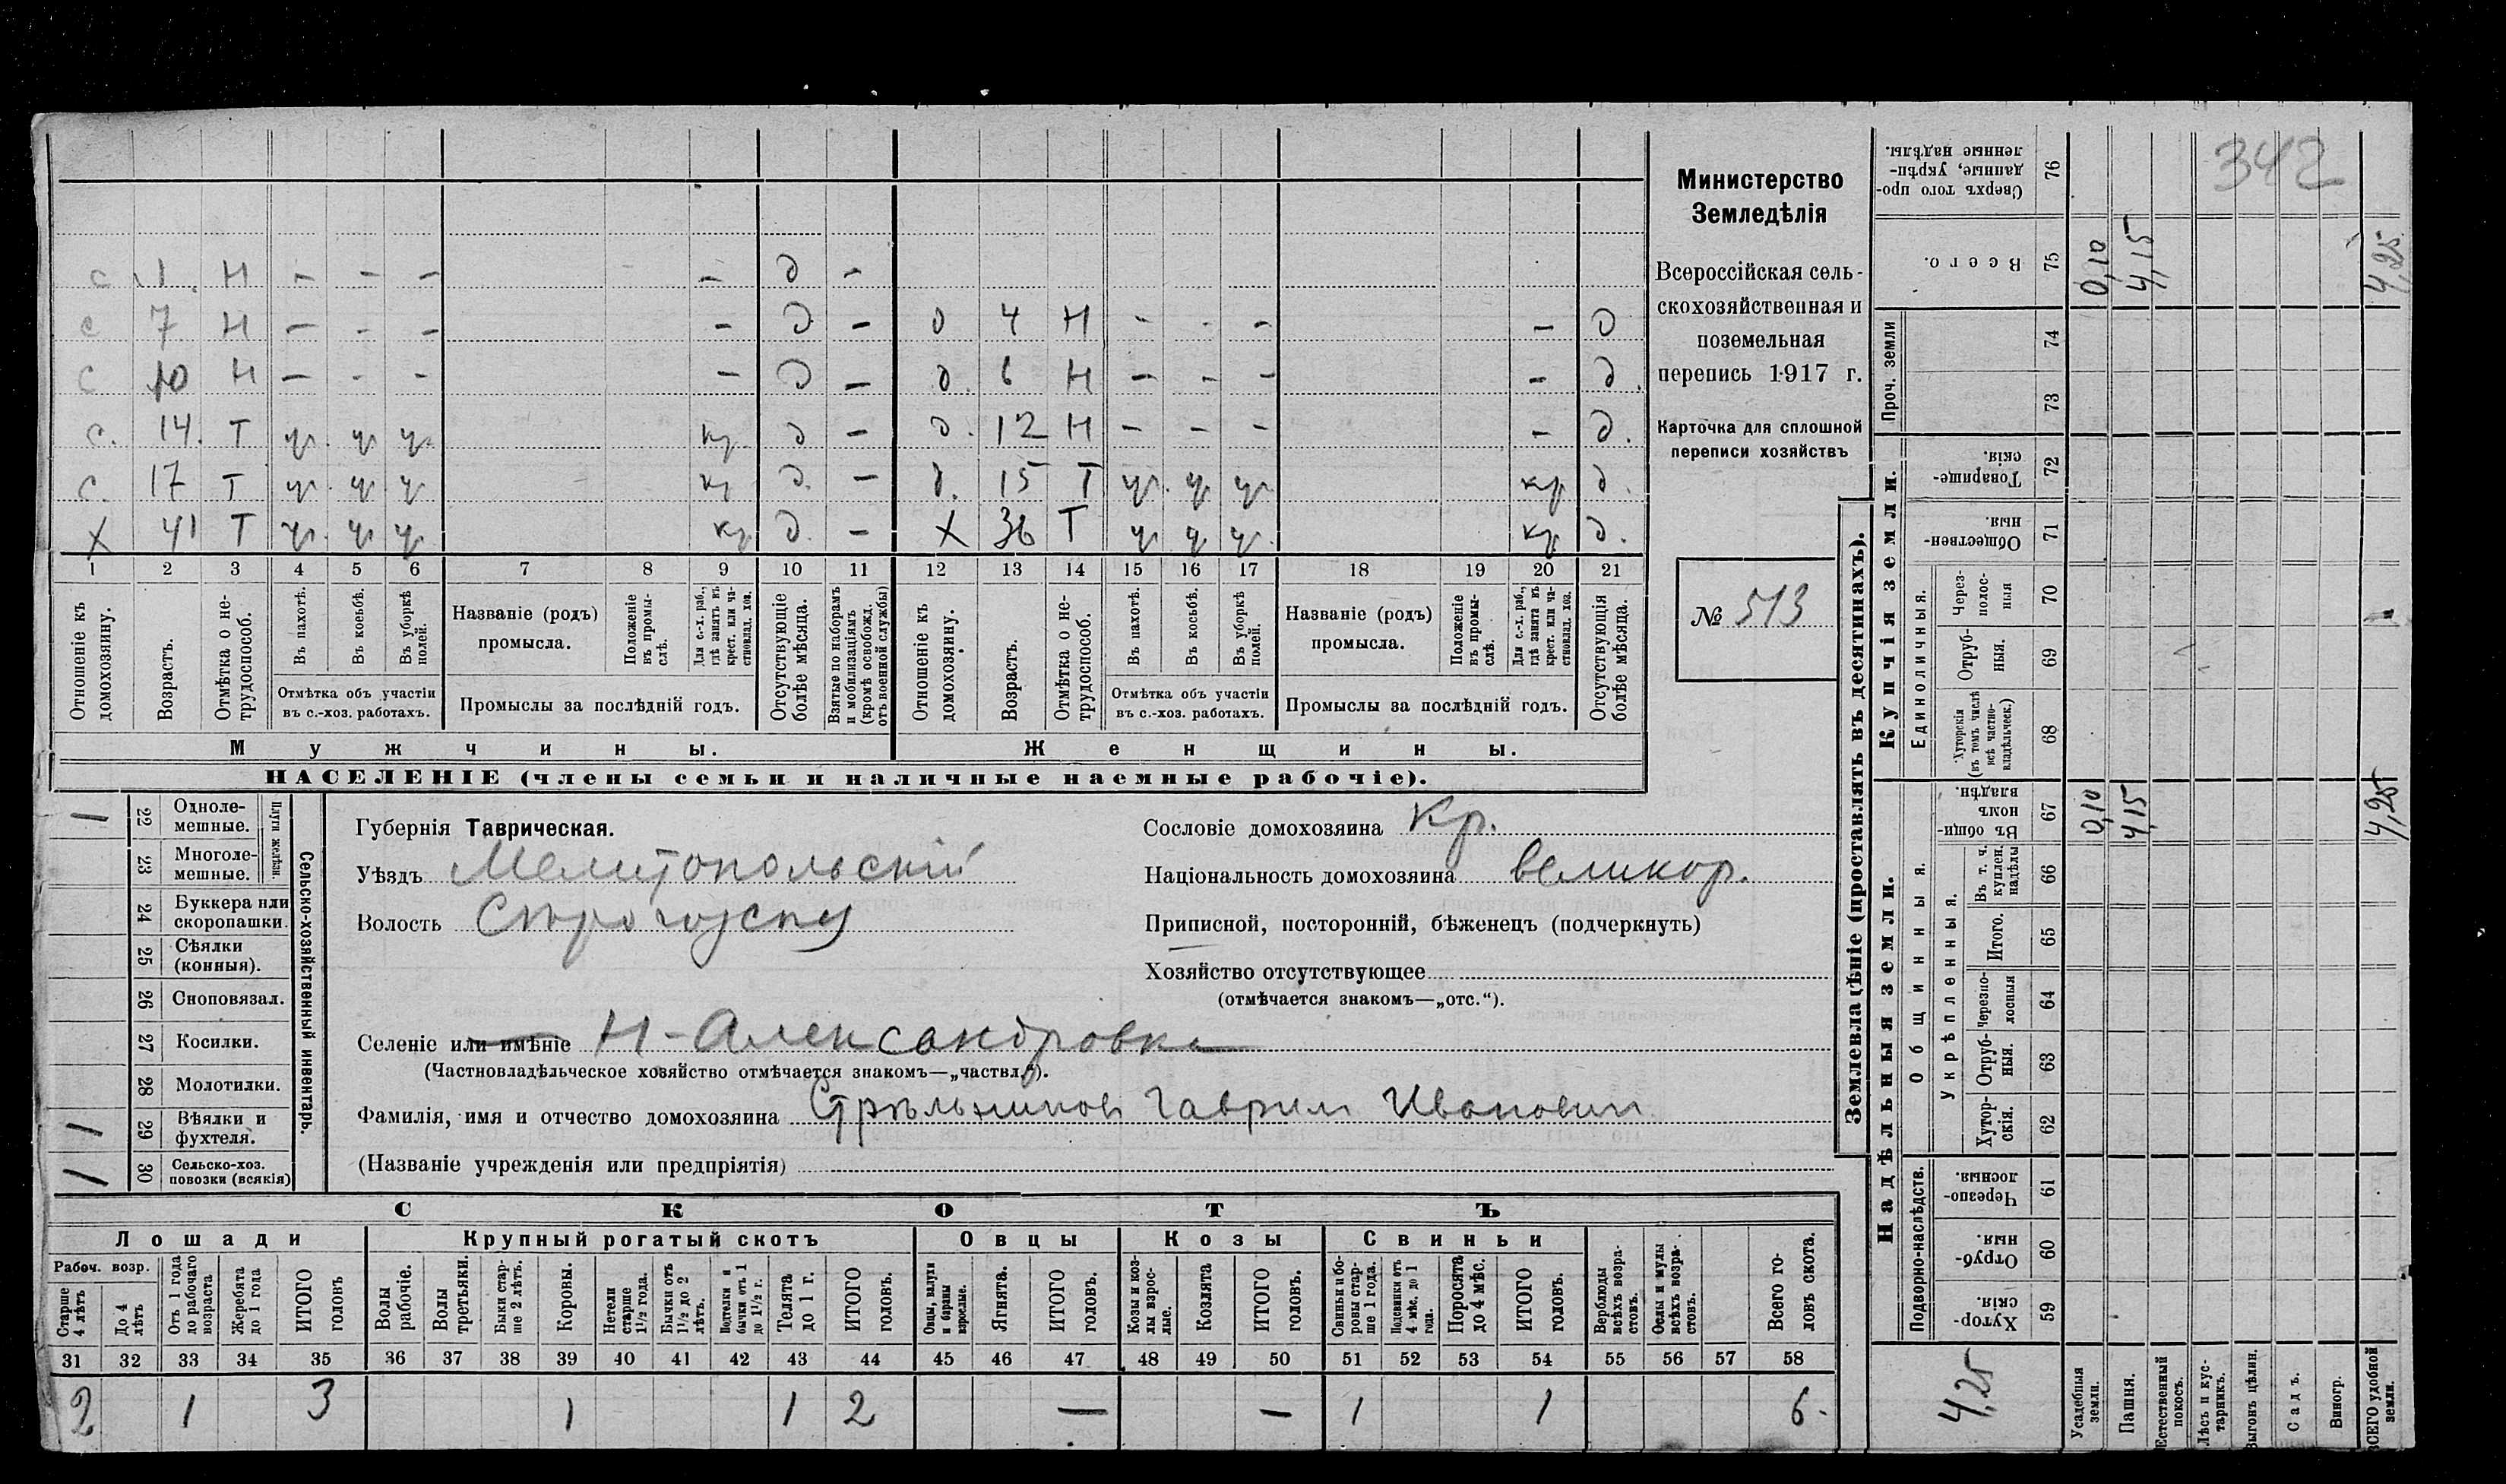 с 1 Н - - - - д -
с 7 Н - - - - д - д 4 Н - - - - д
с 10 Н - - - - д - д. 6 Н - - - - д.
с. 14. Т ч. ч ч. кр. д - д. 12 Н - - - - д.
с. 17 Т ч. ч ч кр д. - д. 15 Т ч. ч ч. кр д.
X 41 Т ч. ч ч кр д. - X 36 Т ч ч ч. кр д.
1 2 3 4 5 6 7 8 9 10 11 12 13 14 15 16 17 18 19 20 21
Отношеніе къ домохозяину.
Возрастъ.
Отмѣтка о не-трудоспособ.
Въ пахотѣ.
Въ косьбѣ.
Въ уборкѣ полей.
Отмѣтка объ участіи
въ с.-хоз. работахъ.
Названіе (родъ)
промысла.
Положеніе въ промы-слѣ.
Для с.-х. раб., гдѣ занятъ въ крест. или ча-стновлад. хоз.
Промыслы за послѣдній годъ.
Отсутствующіе болѣе мѣсяца.
Взятые по наборамъ и мобилизаціямъ (кромѣ освобожд. отъ военной службы)
Отношеніе къ домохозяину.
Возрастъ.
Отмѣтка о не-трудоспособ.
Въ пахотѣ.
Въ косьбѣ.
Въ уборкѣ полей.
Отмѣтка объ участіи
въ с.-хоз. работахъ.
Названіе (родъ)
промысла.
Положеніе въ промы-слѣ.
Для с.-х. раб., гдѣ занята въ крест. или ча-стновлад. хоз.
Промыслы за послѣдній годъ.
Отсутствующія болѣе мѣсяца.
Мужчины. Женщины.
НАСЕЛЕНІЕ (члены семьи и наличные наемные рабочіе).
Министерство
Земледѣлія
Всероссійская сель-
скохозяйственная и
поземельная
перепись 1917 г.
Карточка для сплошной
переписи хозяйствъ
№ 513
1 22 Одноле-мешные.
23 Многоле-мешные.
Плуги желѣзн.
24 Буккера или скоропашки.
25 Сѣялки (конныя).
26 Сноповязал.
27 Косилки.
28 Молотилки.
1 29 Вѣялки и фухтеля.
1 30 Сельско-хоз. повозки (всякія)
Сельско-хозяйственный инвентарь.
Губернія Таврическая.
Уѣздъ Мелитопольскій
Волость Сѣрогозску
Селеніе или имѣніе Н-Александровка
(Частновладѣльческое хозяйство отмѣчается знакомъ—„частвл.“).
Фамилія, имя и отчество домохозяина Стрѣльников Гаврил Иванович
(Названіе учрежденія или предпріятія)
Сословіе домохозяина Кр.
Національность домохозяина великор.
Приписной, посторонній, бѣженецъ (подчеркнуть)
Хозяйство отсутствующее
(отмѣчается знакомъ—„отс.“).
СКОТЪ
Лошади Крупный рогатый скотъ Овцы Козы Свиньи
Рабоч. возр.
Старше 4 лѣтъ
До 4 лѣтъ
Отъ 1 года до рабочаго возраста
Жеребята до 1 года
ИТОГО головъ
Волы рабочіе.
Волы третьяки.
Быки стар-ше 2 лѣтъ.
Коровы.
Нетели старше 1½ года.
Бычки отъ 1½ до 2 лѣтъ.
Подтелки и бычки отъ 1 до 1½ г.
Телята до 1 г.
ИТОГО головъ.
Овцы, валухи и бараны взрослые.
Ягнята.
ИТОГО головъ.
Козы и коз-лы взрос-лые.
Козлята
ИТОГО головъ.
Свиньи и бо-ровы стар-ше 1 года.
Подсвинки отъ 4 мѣс. до 1 года.
Поросята до 4 мѣс.
ИТОГО головъ.
Верблюды всѣхъ возра-стовъ.
Ослы и мулы всѣхъ возра-стовъ.
Всего го-ловъ скота.
31 32 33 34 35 36 37 38 39 40 41 42 43 44 45 46 47 48 49 50 51 52 53 54 55 56 57 58
2 1 3 1 1 2 — — 1 1 6.
Землевладѣніе (проставлять въ десятинахъ).
342
Сверхъ того про-данные, укрѣп-ленные надѣлы. 76
Всего. 75 0,10 4,15 4,25
Проч. земли 74
73
Купчія земли.
Товарище-скія. 72
Обществен-ныя. 71
Единоличныя.
Через-полос-ныя 70
Отруб-ныя. 69
Хуторскія (въ томъ числѣ всѣ частно-владѣльческ.) 68
Надѣльныя земли.
Общинныя.
Въ общин-номъ владѣн. 67 0,10 4,15 4,25
Укрѣпленныя.
Въ т. ч. куплен. надѣлы 66
Итого. 65
Черезпо-лосныя 64
Отруб-ныя. 63
Хутор-скія. 62
Подворно-наслѣдств.
Черезпо-лосныя. 61
Отруб-ныя. 60
Хутор-скія. 59
4,25
Усадебныя земли.
Пашня.
Естественный покосъ.
Лѣсъ и кус-тарникъ.
Выгонъ цѣлин.
Садъ.
Виногр.
ВСЕГО удобной земли.